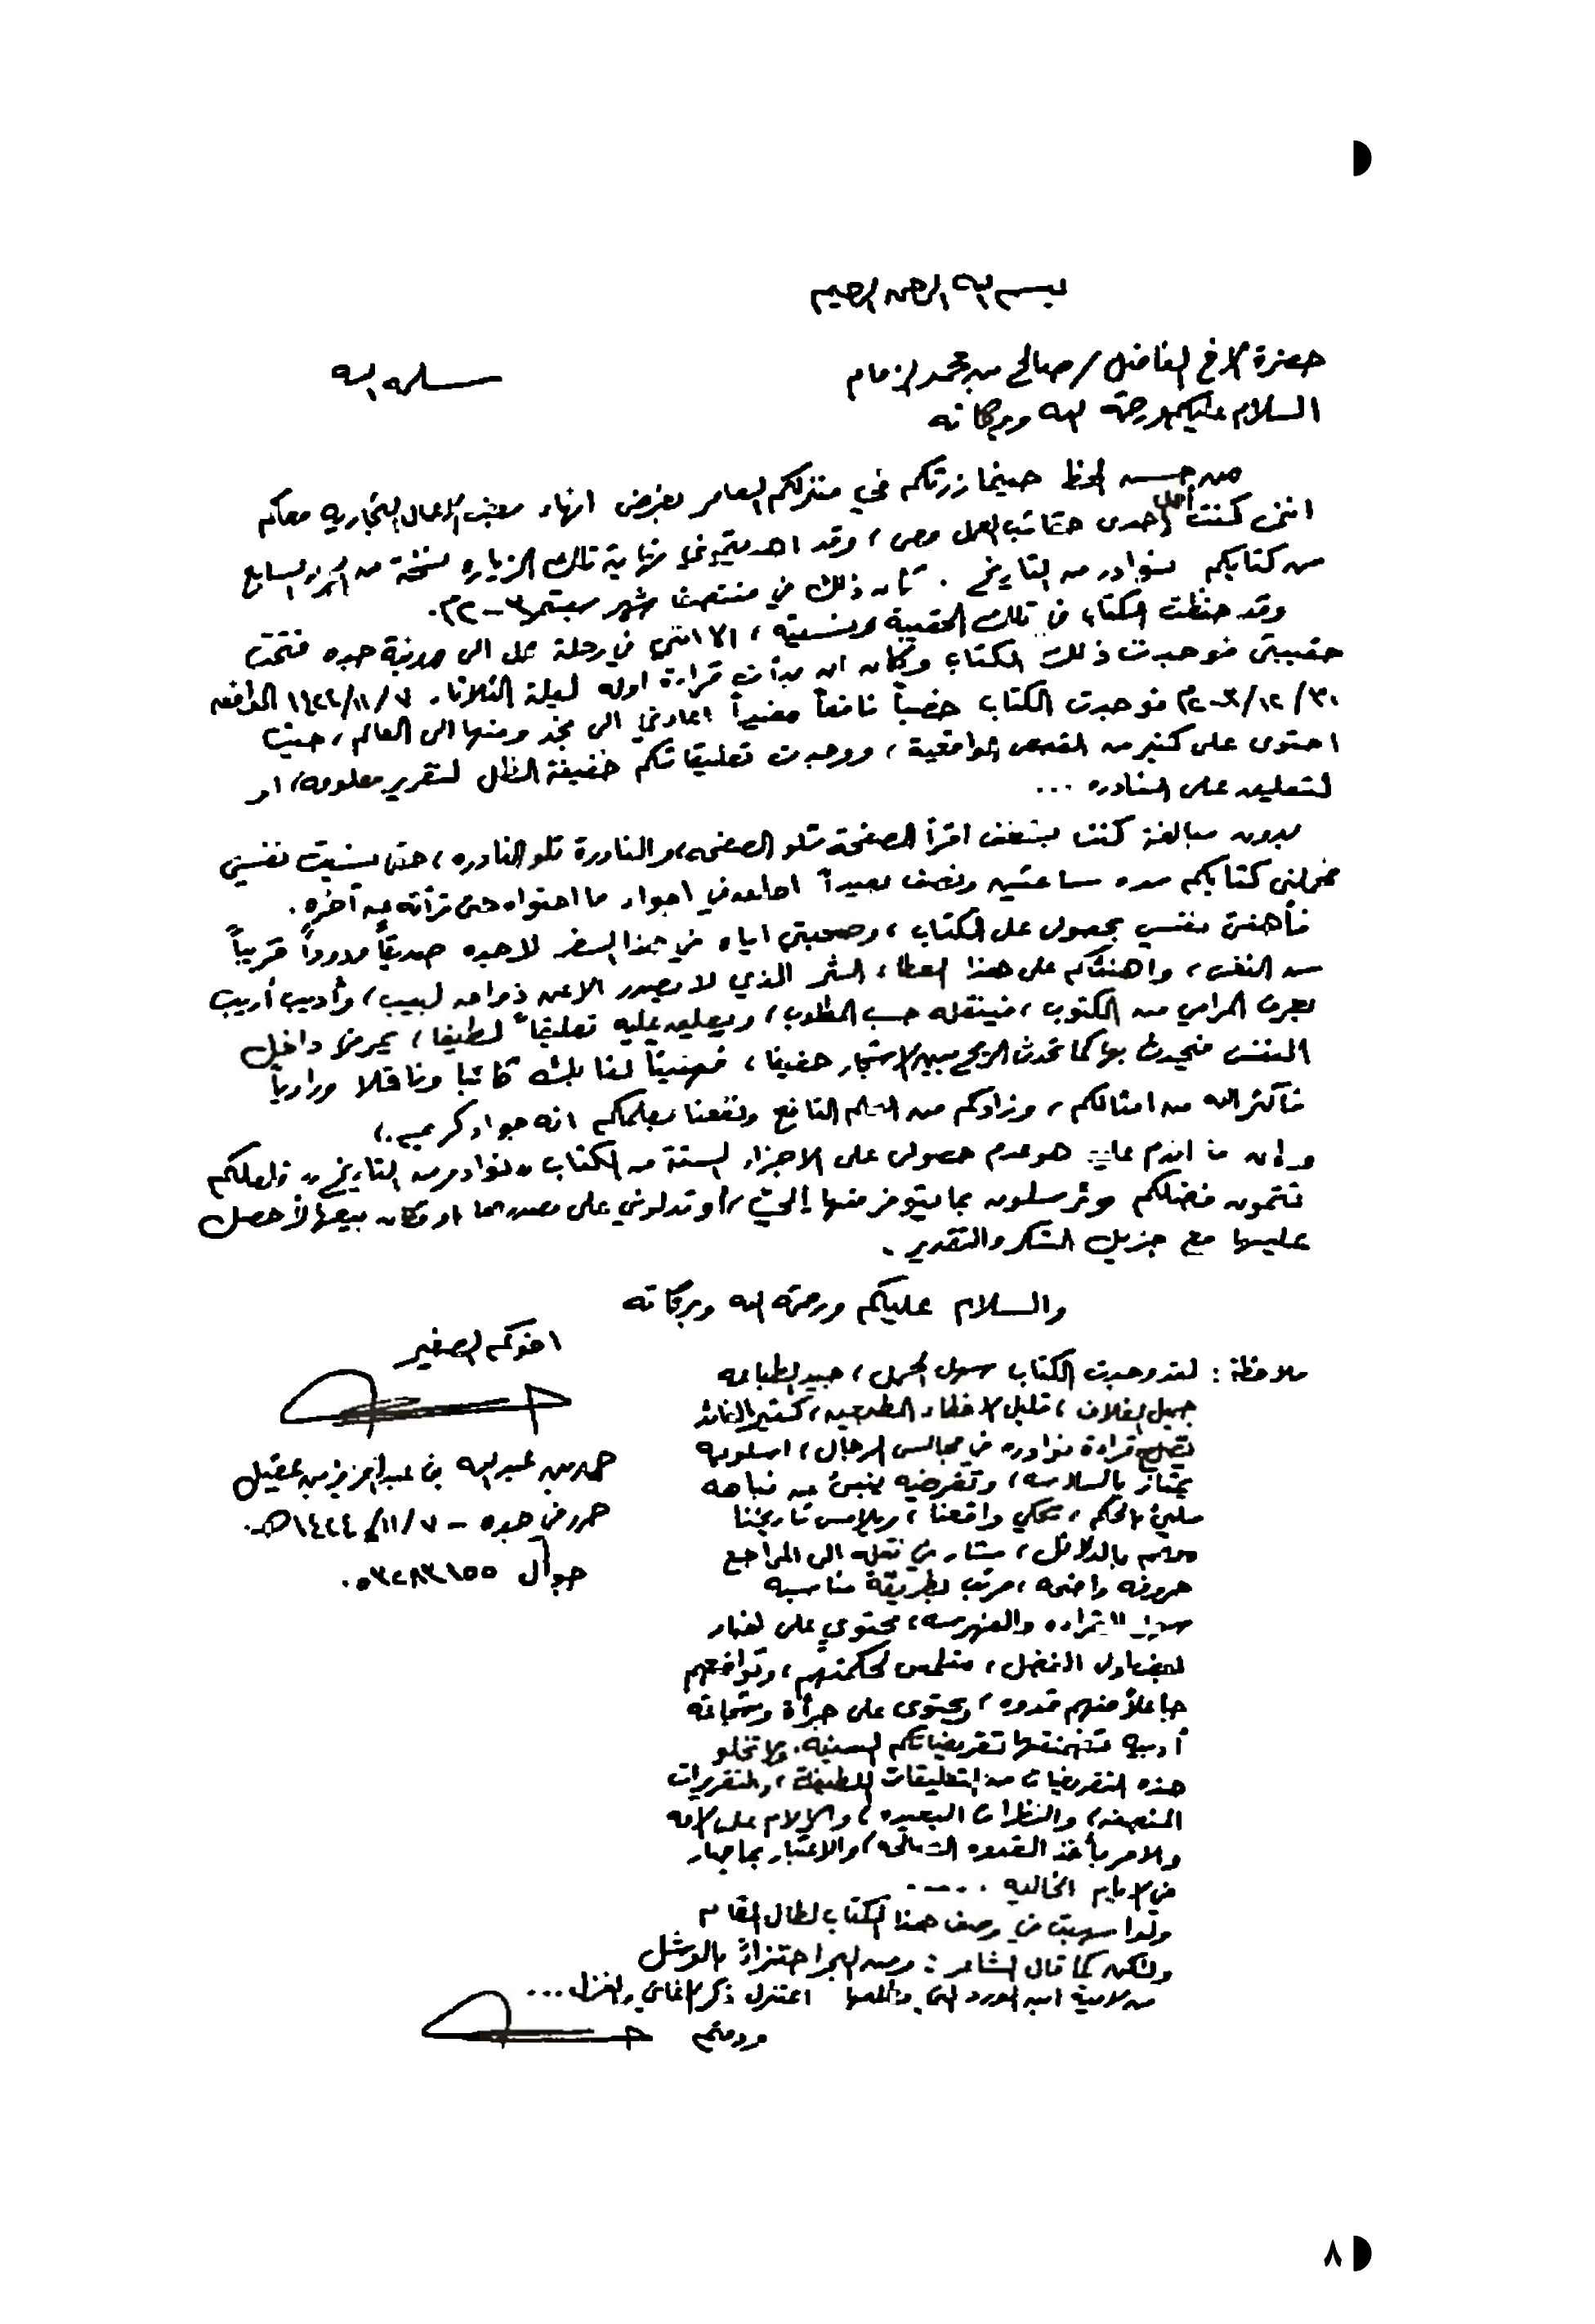 بسم الله الرحمن الرحيم
حضرة الأخ الفاضل / صالح بن محمد الزمام سلمه الله
السلام عليكم ورحمة الله وبركاته
من حسن الحظ حينما زرتكم في منزلكم العامر بغرض انهاء بعض الأعمال التجارية معكم
انني كنت أحمل إحدى حقائب العمل معي، وقد اهديتموني نهاية تلك الزيارة نسخة من الجزء السابع
من كتابكم نوادر من التاريخ . كان ذلك في منتصف شهر سبتمبر ٢٠٠٣م.
وقد حفظت الكتاب في تلك الحقيبة ونسيته، الا انني في رحلة عمل الى مدينة جده فتحت
حقيبتي فوجدت ذلك الكتاب وكان ان بدأت قراءة اوله ليلة الثلاثاء ١٤٢٤/١١/٧ الموافق
٢٠٠٣/١٢/٣٠م فوجدت الكتاب خصباً نافعاً مفيداً اعادني الى نجد ومنها الى العالم، حيث
احتوى على كثير من القصص الواقعية، ووجدت تعليقاتكم خفيفة الظل لتقرير معلومة، او
لتعليق على النادره ...
بدون مبالغة كنت بشغف اقرأ الصفحة تلو الصفحه، والنادرة تلو النادره، حتى نسيت نفسي
كتابكم مده ساعتين ونصف بعيداً في اجواء ما احتواه حتى قرأته عن آخره.
فأهنئ نفسي بحصولي على الكتاب، وصحبتي اياه في هذا السفر لاجده صديقاً ودوداً قريباً
من النفس، واهنئكم على هذا العطاء الثر الذي لا يصدر الا عن لبيب، وأديب أريب
يعرف المرامي من المكتوب، فينتقله حسب المطلوب، ويعلق عليه تعليقاً لطيفا، داخل
النفس فيحدث بها كما تحدث الريح بين الاشجار حفيفا، فهنيئاً لنا بك كاتبا وناقلا وراوياً
فأكثر الله من امثالكم، وزادكم من العلم النافع ونفعنا بعلمكم انه جواد كريم.،
وإن ما اندم عليه هو عدم حصولي على الاجزاء الستة من الكتاب "نوادر من التاريخ" ولعلكم
تتمون فضلكم وترسلون بما يتوفر منها إلي، أو تدلوني على مصدرها او مكان بيعها لأحصل
عليها مع جزيل الشكر والتقدير .
والسلام عليكم ورحمة الله وبركاته
اخوكم الصغير
حمد بن عبدالله بن عبدالعزيز بن عقيل
حرر في جده - ١٤٢٤/١١/٧هـ.
جوال
ملاحظة : لقد وجدت الكتاب سهل الحمل، جيد الطباعه
جميل الغلاف، قليل الاخطاء المطبعيه، كثير الفائده
تصلح قراءة نوادره في مجالس الرجال، اسلوبه
يمتاز بالسلاسه، وتقرضيه ينبئ عن نباهه
مليئ بالحكم، تحكي واقعنا، ويلامس تاريخنا
مدعم بالدلائل، مشار في نقله الى المراجع
حروفه واضحه، مرتب بطريقة مناسبه
سهل القراءه والفهرسه، محتوي على اخبار
لبعض اولي الفضل، متلمس لحكمتهم، وتواضعهم
جاعلاً منهم قدوه، ويحتوى على جرأة وشجاعة
أدبيه تضمنتها تقريضاتكم السنيه. ولا تخلو
هذه التقريضات من التعليقات اللطيفة، والتقريرات
المنصفه، والنظرات البعيده، والإلام على الامه
والامر بأخذ القدوه الصالحه، والاعتبار بما صار
في الايام الخاليه . . . . .
ولو اسهبت في وصف هذا الكتاب لطال المقام
ولكن كما قال الشاعر : ومن البحر اجتزاءٌ بالوشل
من لامية ابن الوردي التي مطلعها اعتزل ذكر الاغاني والغزل...
ودمتم
٨